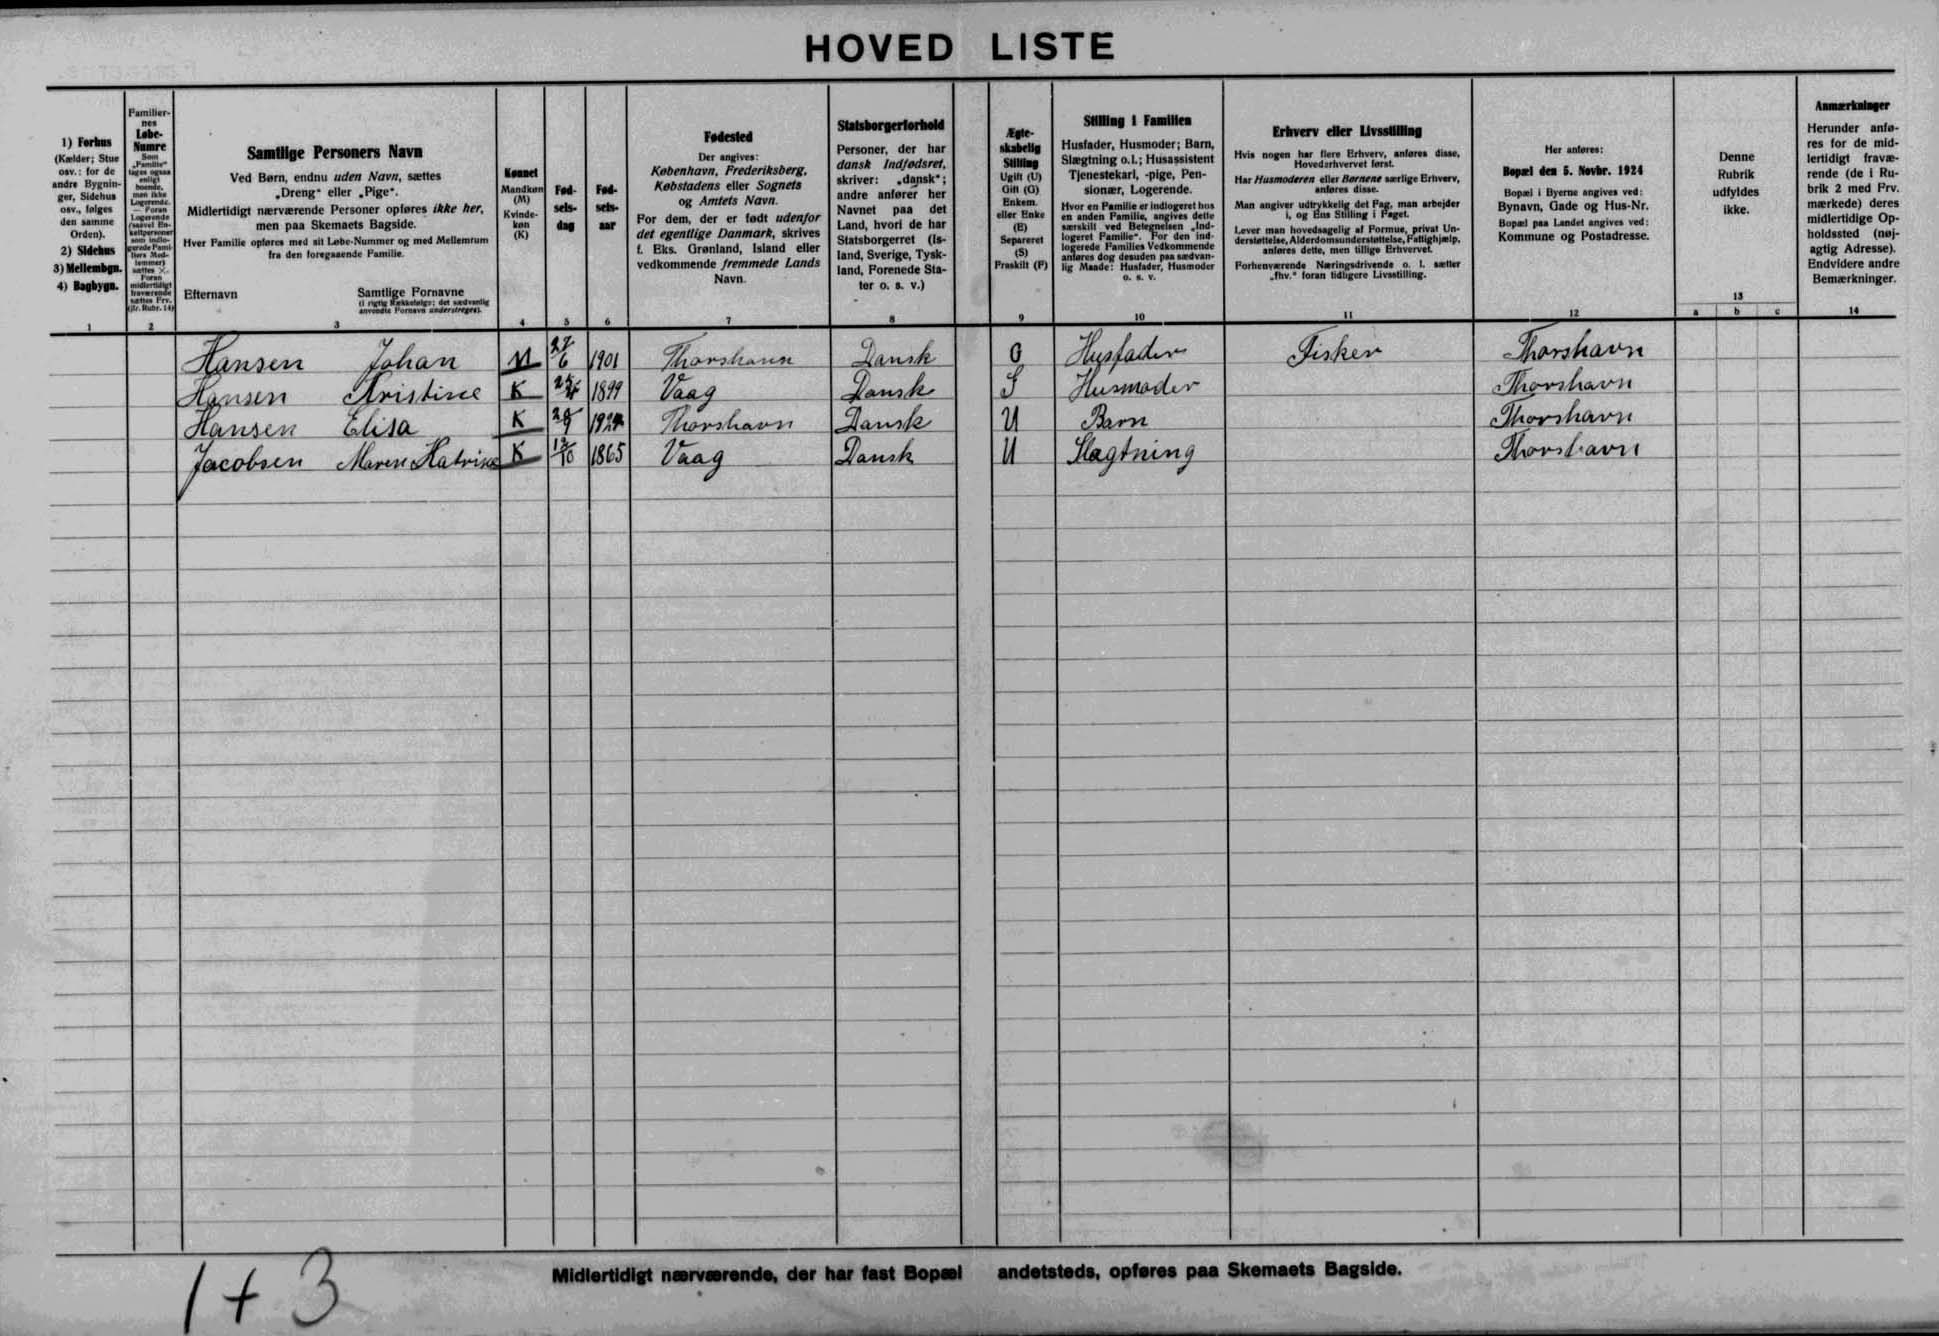 HOVED LISTE
1) Forhus
(Kælder; Stue
osv.: for de
andre Bygnin-
ger, Sidehus
osv., følges
den samme
Orden).
2) Sidehus
3) Mellembgn.
4) Bagbygn.
1
Familier-
nes
Løbe-
Numre
Som
„Familie"
tages ogsaa
enligt
boende,
men ikke
Logerende.
— Foran
Logerende
(saavel En-
keltpersoner
som indlo-
gerede Fami-
liers Med-
lemmer)
sættes ×.
Foran
midlertidigt
fraværende
sættes Frv.
(jfr. Rubr. 14)
2
Samtlige Personers Navn
Ved Børn, endnu uden Navn, sættes
„Dreng" eller „Pige".
Midlertidigt nærværende Personer opføres ikke her,
men paa Skemaets Bagside.
Hver Familie opføres med sit Løbe-Nummer og med Mellemrum
fra den foregaaende Familie.
Efternavn Samtlige Fornavne
(i rigtig Rækkefølge; det sædvanlig
anvendte Fornavn understreges).
3
Kønnet
Mandkøn
(M)
Kvinde-
køn
(K)
4
Fød-
sels-
dag
5
Fød-
sels-
aar
6
Fødested
Der angives:
København, Frederiksberg,
Købstadens eller Sognets
og Amtets Navn.
For dem, der er født udenfor
det egentlige Danmark, skrives
f. Eks. Grønland, Island eller
vedkommende fremmede Lands
Navn.
7
Statsborgerforhold
Personer, der har
dansk Indfødsret,
skriver: „dansk";
andre anfører her
Navnet paa det
Land, hvori de har
Statsborgerret (Is-
land, Sverige, Tysk-
land, Forenede Sta-
ter o. s. v.)
8
Ægte-
skabelig
Stilling
Ugift (U)
Gift (G)
Enkem.
eller Enke
(E)
Separeret
(S)
Fraskilt (F)
9
Stilling i Familien
Husfader, Husmoder; Barn,
Slægtning o.l.; Husassistent
Tjenestekarl, -pige, Pen-
sionær, Logerende.
Hvor en Familie er indlogeret hos
en anden Familie, angives dette
særskilt ved Betegnelsen „Ind-
logeret Familie". For den ind-
logerede Families Vedkommende
anføres dog desuden paa sædvan-
lig Maade: Husfader, Husmoder
o. s. v.
10
Erhverv eller Livsstilling
Hvis nogen har flere Erhverv, anføres disse,
Hovederhvervet først.
Har Husmoderen eller Børnene særlige Erhverv,
anføres disse.
Man angiver udtrykkelig det Fag, man arbejder
i, og Ens Stilling i Faget.
Lever man hovedsagelig af Formue, privat Un-
derstøttelse, Alderdomsunderstøttelse, Fattighjælp,
anføres dette, men tillige Erhvervet.
Forhenværende Næringsdrivende o. l. sætter
„fhv." foran tidligere Livsstilling.
11
Her anføres:
Bopæl den 5. Novbr. 1924
Bopæl i Byerne angives ved:
Bynavn, Gade og Hus-Nr.
Bopæl paa Landet angives ved:
Kommune og Postadresse.
12
Denne
Rubrik
udfyldes
ikke.
13
a b c
Anmærkninger
Herunder anfø-
res for de mid-
lertidigt fravæ-
rende (de i Ru-
brik 2 med Frv.
mærkede) deres
midlertidige Op-
holdssted (nøj-
agtig Adresse).
Endvidere andre
Bemærkninger.
14
Hansen Johan M 27/6 1901 Thorshavn Dansk G Husfader Fisker Thorshavn
Hansen Kristine K 1899 Vaag Dansk G Husmoder Thorshavn
Hansen Elisa K 1924 Thorshavn Dansk U Barn Thorshavn
Jacobsen Maren Katrine K 12/10 1865 Vaag Dansk U Slægtning Thorshavn
Midlertidigt nærværende, der har fast Bopæl andetsteds, opføres paa Skemaets Bagside.
1 + 3